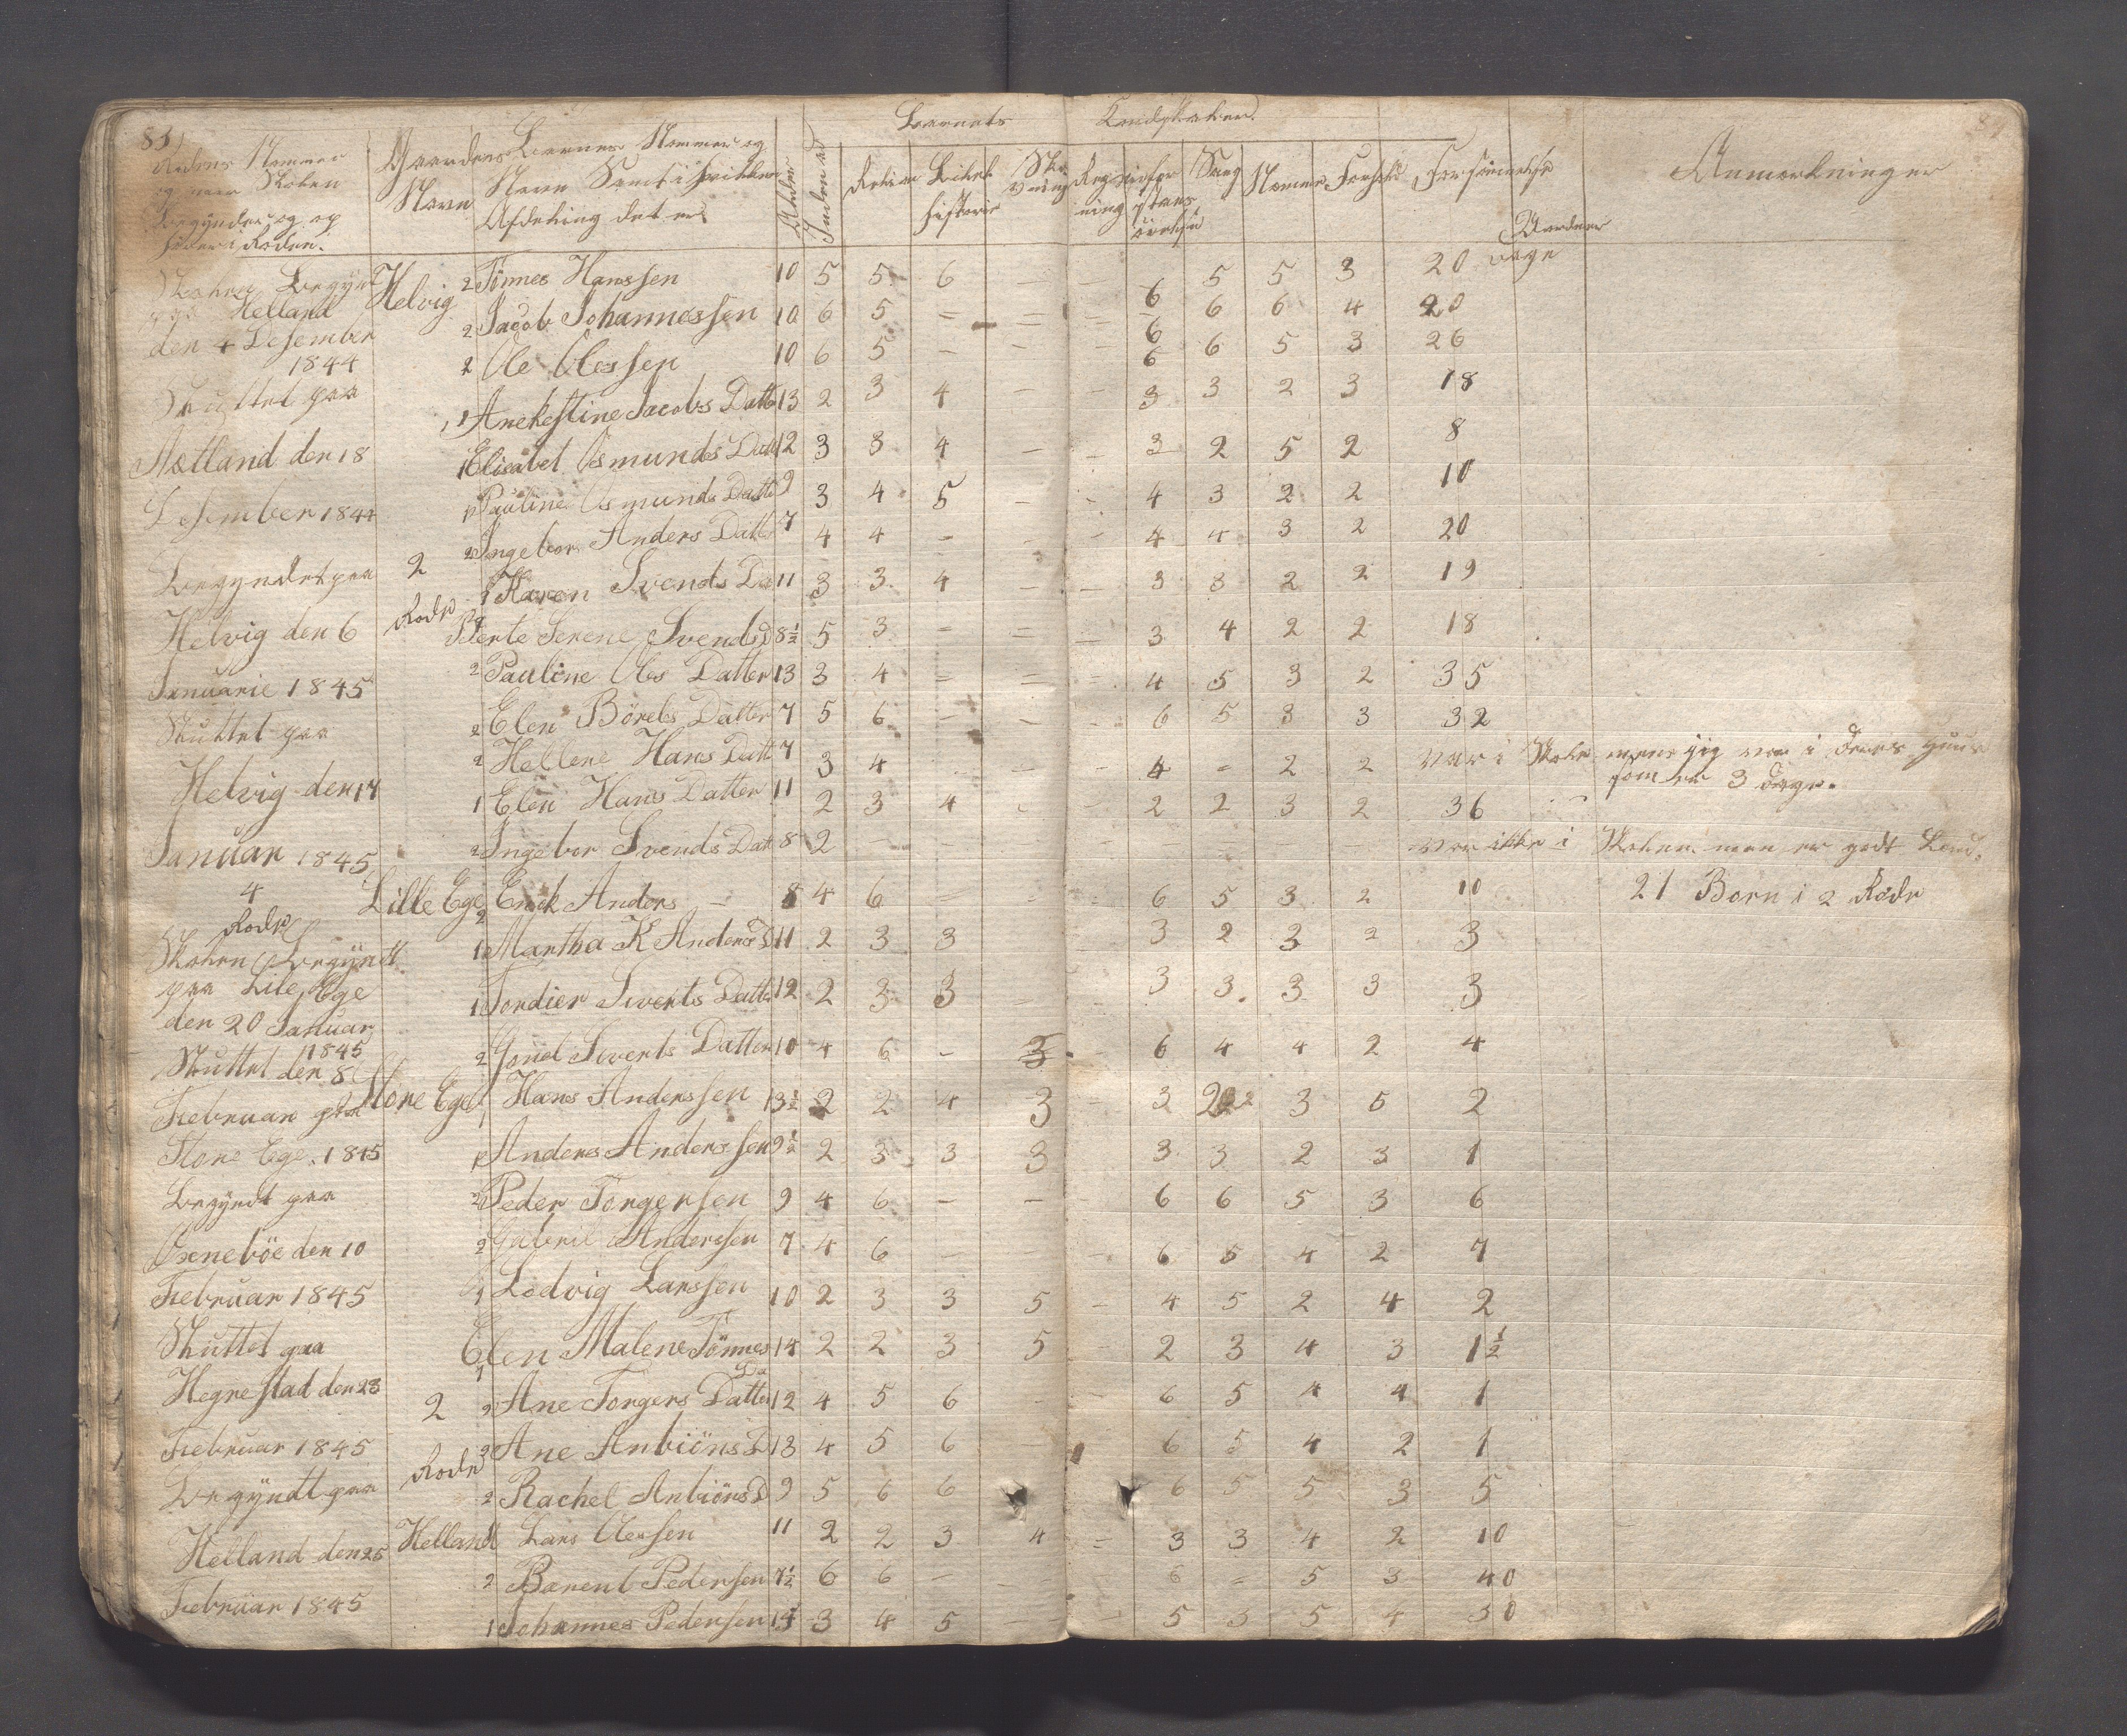 83)
Barnets Kundskaber.
Rodens Nommer
og naar Skolen
Begyndes og op
hører i Roden.
Gaardens
Navn
Børnes Nommer og
Navn Samt i hvilken
Afdeling det er
Alder
Indenad
Religion
Bibel
historie
Skri
vning
Regn
ning
Sang
Nemme
Forhold
Forsömmelse
Anmærkninger
dage
Helvig 2 Tönnes Hanssen 10 5 5 6 – – 6 5 5 3 20
2 Jacob Johannessen 10 6 5 = = = 6 6 6 4 20
2 Ole Olessen 10 6 5 – – – 6 6 5 3 26
1 Anekestine Jacobs Datter 13 2 3 4 – – 3 3 2 3 18
1 Elisabet Osmunds Datt 12 3 3 4 – – 3 2 5 2 8
1 Pauline Osmunds Datte 9 3 4 5 – – 4 3 2 2 10
2 Ingebor Anders Datt 7 4 4 – – – 4 4 3 2 20
1 Karen Svends Da 11 3 3 4 – – 3 3 2 2 19
Berte Serene Svends D 8½ 5 3 = = – 3 4 2 2 18
2 Pauline Oles Datter 13 3 4 = = = 4 5 3 2 35
2 Elen Börels Datter 7 5 6 – – – 6 5 3 3 32
2 Hellene Hans Datt 7 3 4 – – – 4 – 2 2 var i Skole mens jig var i Deres Huus
som er 3 dage.
1 Elen Hans Datter 11 2 3 4 – – 2 2 3 2 36
2 Ingebor Svends Dat 8 2 – – – – – – – – var ikke i Skolen men er godt
Lille Ege 2 Erick Anders – 8 4 6 = – – 6 5 3 2 10 21 Born i 2 Rode
1 Martha K Anders D 11 2 3 3 3 2 3 2 3
1 Tordier Siverts Datte 12 2 3 3 – 3 3 3 3 3
2 Gunel Siverts Datter 10 4 6 – 3 – 6 4 4 2 4
Store Ege 1 Hans Anderssen 13½ 2 2 4 3 – 3 2 3 5 2
1 Anders Anderssen 9½ 2 3 3 3 3 3 2 3 1
2 Peder Torgersen 9 4 6 – – – 6 6 5 3 6
2 Gabriel Anderssen 7 4 6 – – 6 5 4 2 7
1 Lodvig Larssen 10 2 3 3 5 – 4 5 2 4 2
1 Elen Malene Tönnes Da 14 2 2 3 5 2 3 4 3 1½
2 Ane Torgers Datter 12 4 5 6 – 6 5 4 4 1
2 Ane Anbiöns D 13 4 5 6 6 5 4 2 1
2 Rachel Anbiörs D 9 5 6 6 6 5 5 3 5
Helland Lars Olessen 11 2 2 3 4 = 3 3 4 2 10
2 Barent Pedersen 7½ 6 6 – – 6 – 5 3 40
1 Johannes Pedersen 14 3 4 5 – – 5 3 5 4 30
Skolen Begyndt
paa Helland
den 4 Desember
1844
Sluttet paa
Aatland den 18
Desember 1844
Begyndet paa
Helvig den 6
Januarie 1845
Sluttet paa
Helvig den 17
Januar 1845
4
Rode
Skolen Begyndt
paa Lile Ege
den 20 Januar
1845
Sluttet den 8
Februar paa
Store Ege 1845
Begyndt paa
Oxeneböe den 10
Februar 1845
Sluttet paa
Hegrestad den 23
Februar 1845
Begyndt paa
Helland den 25
Februar 1845
2
Rode
2
Rode